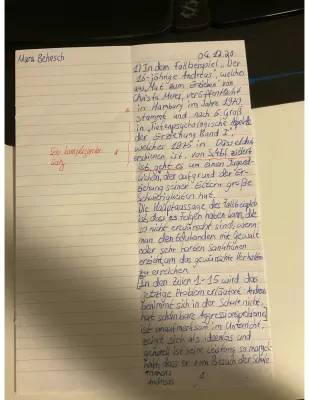 Mara Behesch
04.12.20
1) In dem Fallbeispiel „Der
16-jährige Andreas", welches
aus „Mut zum Erziehen" von
Christa Meves, veröffentlicht
in Hamburg im Jahre 1970
stammt und nach S. Groß
in „Tiefenpsychologische Aspekte
der Erziehung Band I",
welches 1975 in Düsseldorf
erschienen ist, von zitiert
ist, geht es um einen Jugend-
lichen, der aufgrund der Er-
ziehung seiner Eltern große
Schwierigkeiten hat.
Sehr komplizierter
Satz
Die Hauptaussage des Fallbeispiels
ist, dass es Folgen haben kann, die
so nicht erwünscht sind, wenn
man den Jugendlichen mit Gewalt
oder sehr harten Sanktionen
erzieht, um das gewünschte Verhalten
zu erreichen.
In den Zeilen 1-15 wird das
jetzige Problem erläutert. Andreas
benimmt sich in der Schule nicht,
hat scheinbare Aggressionsprobleme,
ist unaufmerksam im Unterricht,
zeigt sich als ideenlos und
generell ist seine Leistung so mangel-
haft, dass er vom Besuch der Schule
Andreas